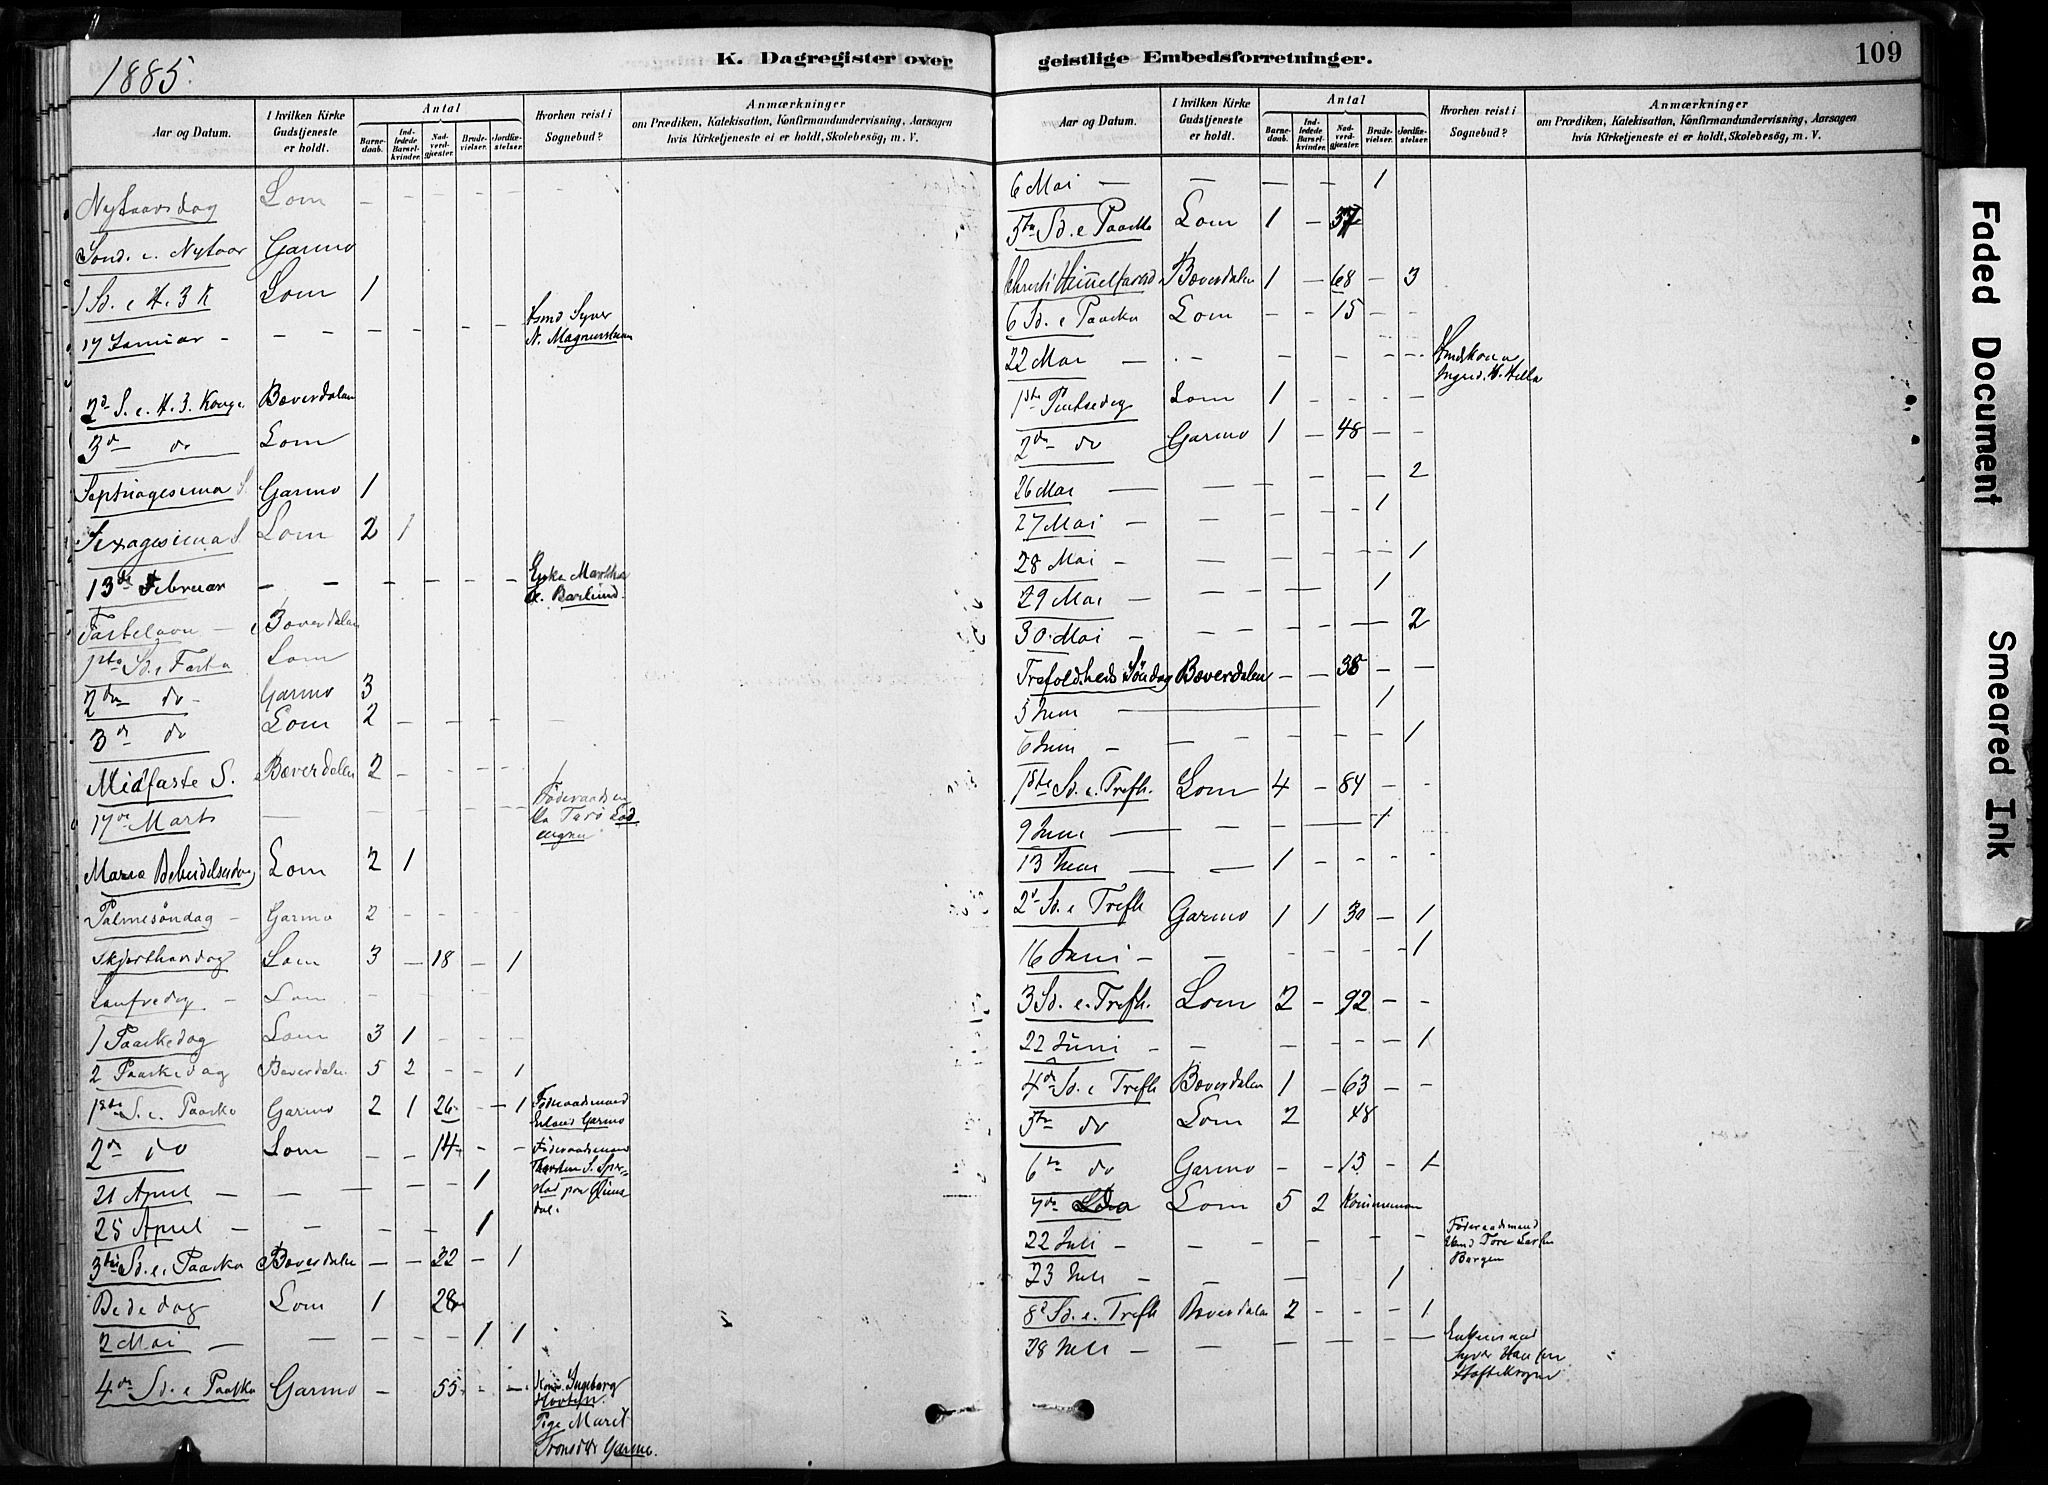 1885.
K. Dagregister over
geistlige Embedsforretninger.
109
Aar og Datum.
I hvilken Kirke Gudstjeneste er holdt.
Antal
Barnedaab.
Indledede Barselkvinder.
Nadverdgjæster.
Brudevielser.
Jordfæstelser.
Hvorhen reist i Sognebud?
Anmærkninger
om Prædiken, Katekisation, Konfirmandundervisning, Aarsagen
hvis Kirketjeneste ei er holdt, Skolebesøg, m. V.
Nytaarsdag Lom – – – – – –
Sønd. e. Nytaar Garmo
1 Sd. e. H. 3 K Lom 1
17 Januar – – – – – – – Syver
N. Magnusstuen
2d S. e. H. 3. Konge. Bæverdalen
3d do Lom
Septuagesima S. Garmo 1
Sexagesima S. Lom 2 1
13de Februar – – – – – – Enke Marthe
Barlund.
Fastelavn – Bæverdalen
1ste Sd. e Faste Lom
2den do – Garmo 3
3d do Lom 2 – – – – –
Midfaste S. Bæverdalen 2 – – – –
17de Marts – – – – – –
Maria Bebudelsesdag Lom 2 1
Palmesøndag – Garmo 2 – – – –
Skjærthorsdag Lom 3 – 18 – 1
Lanfredag – Lom – –
1 Paaskedag Lom 3 1 – – –
2 Paaskedag Bæverdalen 5 2 – – 1
1ste S. e. Paaske Garmo 2 1 26 – 1 Føderaadsmand
Erland Garmo
2d do Lom – – 14 – – Føderaadsmand
21 April – – – – – 1
25 April – – – – – 1
3die Sd. e. Paaske Bæverdalen – – 22 – 1
Bededag Lom 1 28
2 Mai – – – – – 1 1
4de Sd. e Paaske Garmo – 55 – – Kone Ingeborg
Pige Marit
Garmo.
Aar og Datum.
I hvilken Kirke Gudstjeneste er holdt.
Antal
Barnedaab.
Indledede Barselkvinder.
Nadverdgjæster.
Brudevielser.
Jordfæstelser.
Hvorhen reist i Sognebud?
Anmærkninger
om Prædiken, Katekisation, Konfirmandundervisning, Aarsagen
hvis Kirketjeneste ei er holdt, Skolebesøg, m. V.
6 Mai – – – – 1
5te Sd. e Paaske Lom 1 – 37
Christi Himmelfartsd. Bæverdalen 1 – 68 – 3
6 Sd. e Paaske Lom – – 15 – –
22 Mai – – – – – – –
1ste Pintsedag Lom 1 – – – –
2den do Garmo 1 – 48 – –
26 Mai – – – – – – 2
27 Mai – – – – – 1
28 Mai – – – – – – 1
29 Mai – – – – – 1
30 Mai – – – – – – 2
Trefoldheds Søndag Bæverdalen – – 38 – –
5 Juni – 1
6 Juni – – – – – – 1
1ste Sd. e. Trefh. Lom 4 – 84 – –
9 Juni – – – – – 1
13 Juni – – 1 – – – –
2d Sd. e Trefh Garmo 1 1 30 – 1
16 Juni – – – – – – 1
3 Sd. e. Trefh. Lom 2 – 92 – –
22 Juni – – – – – – 1
4de Sd. e Trefh Bæverdalen 1 – 63 – –
5te do Lom 2 48
6te do Garmo – – 13 – 1
7de do Lom 5 2
22 Juli – – – – – – – Føderaadsmand
Tore
Bergen
23 Juli – – – 1
8d Sd. e. Trefh Bæverdalen 2 – – – 1
28 Juli – – – – – – –
Syver
Faded Document
Smeared Ink